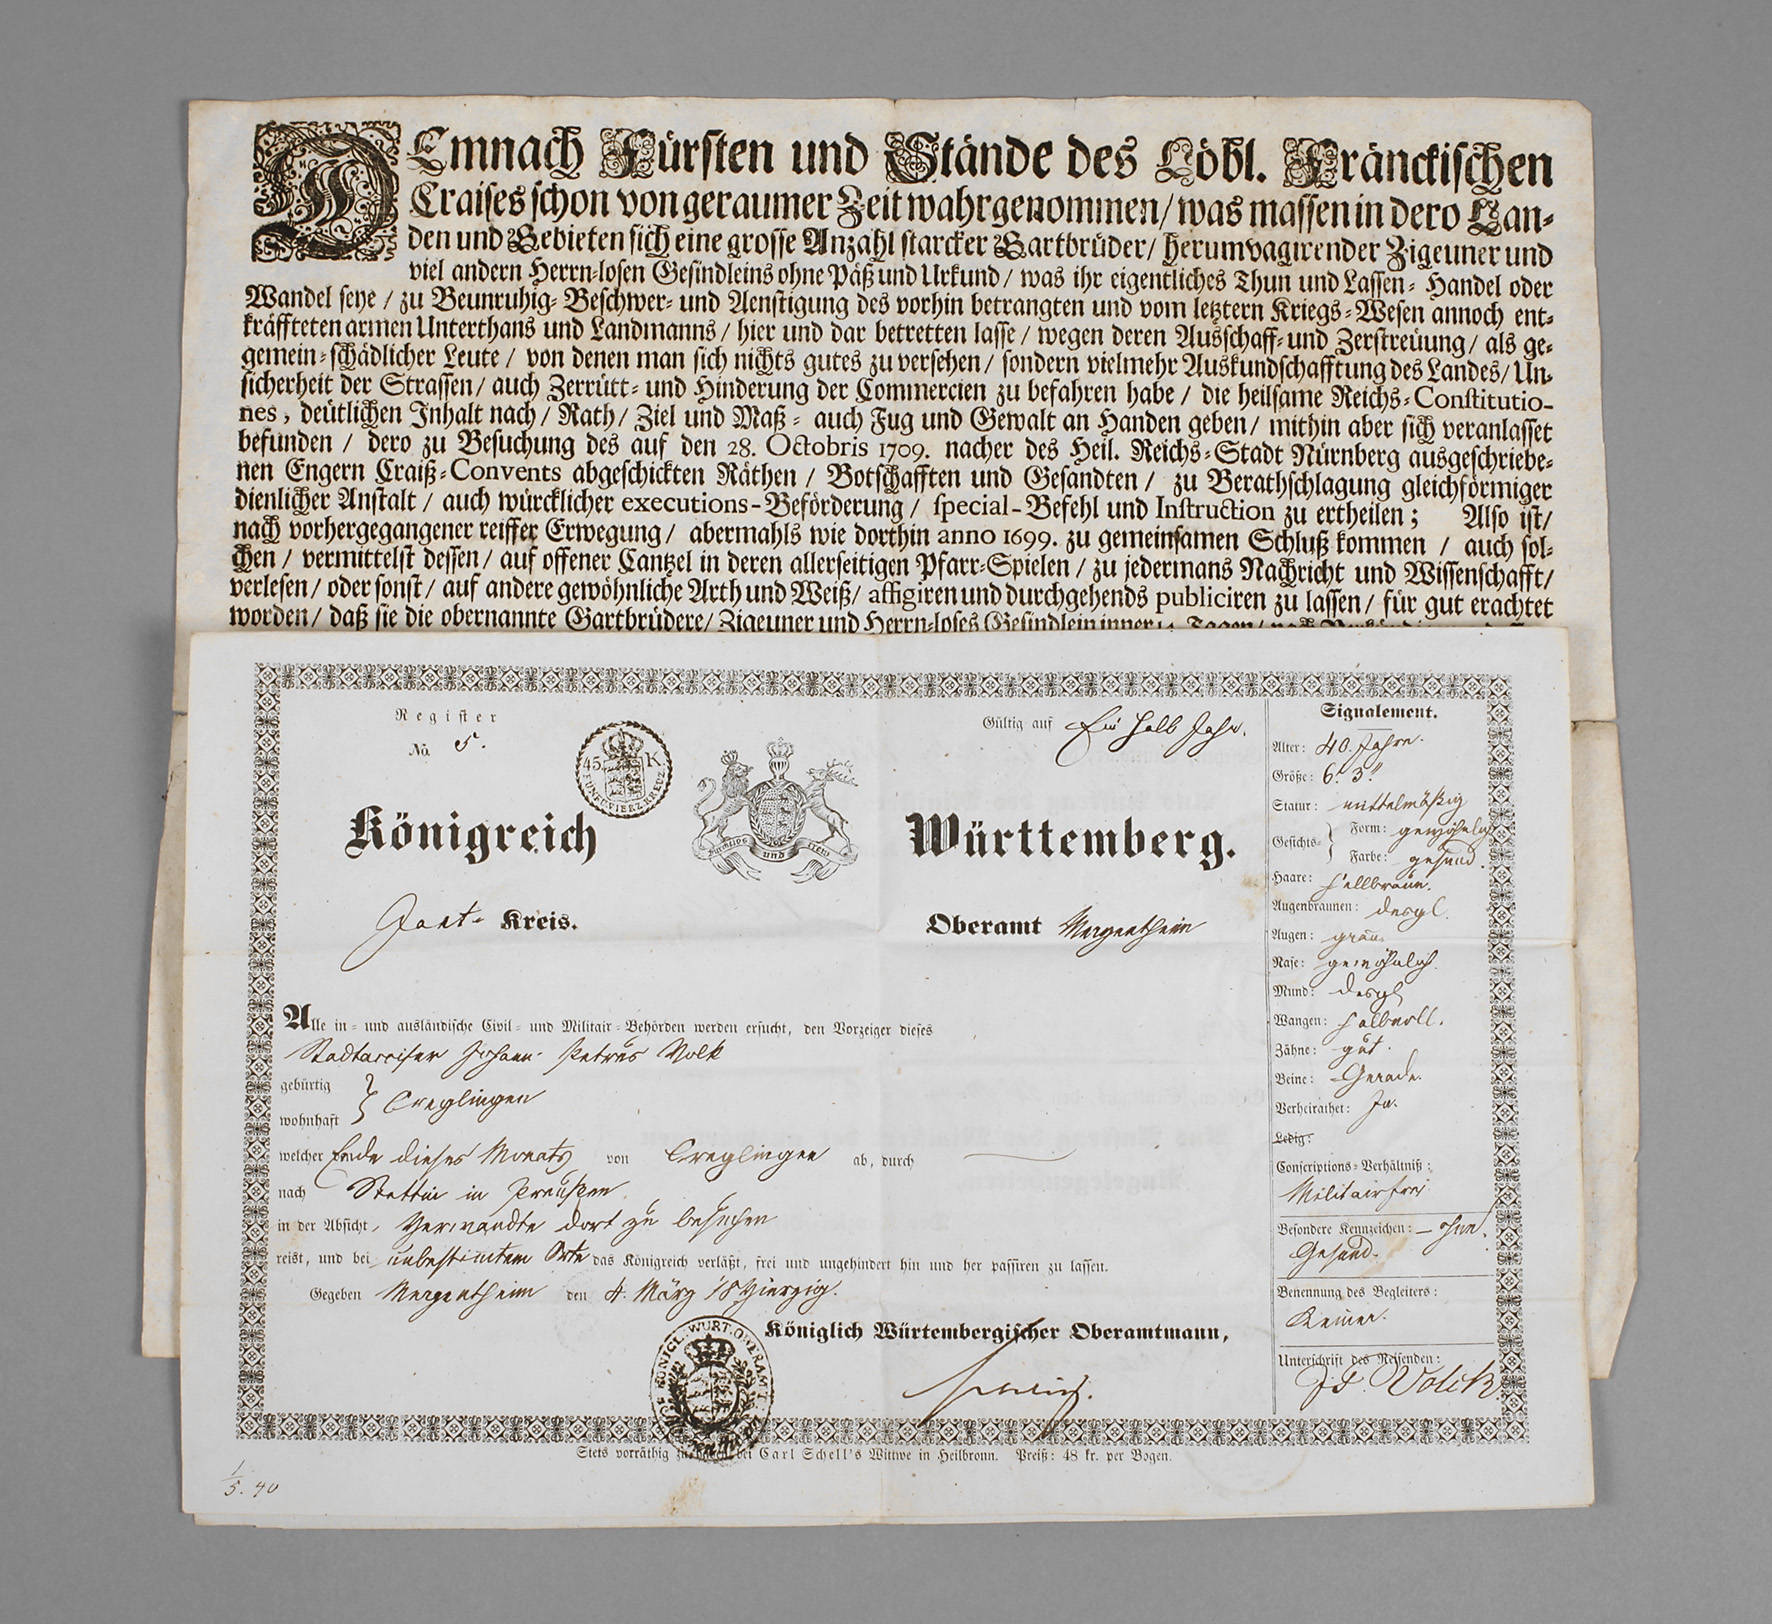 DEmnach Fürsten und Stände des Löbl. Fränckischen
Craises schon von geraumer Zeit wahrgenommen/ was massen in dero Lan-
den und Gebieten sich eine grosse Anzahl starcker Gartbrüder/ herumvagirender Zigeuner und
viel andern Herrn-losen Gesindleins ohne Päß und Urkund/ was ihr eigentliches Thun und Lassen- Handel oder
Wandel seye/ zu Beunruhig- Beschwer- und Aenstigung des vorhin betrangten und vom letztern Kriegs-Wesen annoch ent-
kräffteten armen Unterthans und Landmanns/ hier und dar betretten lasse/ wegen deren Ausschaff- und Zerstreüung/ als ge-
gemein-schädlicher Leute/ von denen man sich nichts gutes zu versehen/ sondern vielmehr Auskundschafftung des Landes/ Un-
sicherheit der Strassen/ auch Zerrütt- und Hinderung der Commercien zu befahren habe/ die heilsame Reichs-Constitutio-
nes, deütlichen Inhalt nach/ Rath/ Ziel und Maß- auch Fug und Gewalt an Handen geben/ mithin aber sich veranlasset
befunden/ dero zu Besuchung des auf den 28. Octobris 1709. nacher des Heil. Reichs-Stadt Nürnberg ausgeschriebe-
nen Engern Craiß-Convents abgeschickten Räthen/ Botschafften und Gesandten/ zu Berathschlagung gleichförmiger
dienlicher Anstalt/ auch würcklicher executions-Beförderung/ special-Befehl und Instruction zu ertheilen; Also ist/
nach vorhergegangener reiffer Erwegung/ abermahls wie dorthin anno 1699. zu gemeinsamen Schluß kommen/ auch sol-
chen/ vermittelst dessen/ auf offener Cantzel in deren allerseitigen Pfarr-Spielen/ zu jedermans Nachricht und Wissenschafft/
verlesen/ oder sonst/ auf andere gewöhnliche Arth und Weiß/ affigiren und durchgehends publiciren zu lassen/ für gut erachtet
worden/ daß sie die obernannte Gartbrüdere/ Zigeuner und Herrn-loses Gesindlein inner 14 Tagen/
Register
No. 5.
45 K
Gültig auf Ein halb Jahr.
Königreich Württemberg.
Furchtlos und trew
Jaxt- Kreis.
Oberamt Mergentheim
Alle in- und ausländische Civil- und Militair-Behörden werden ersucht, den Vorzeiger dieses
Stadtacciser Johann Petrus Volk
gebürtig
wohnhaft } Creglingen
welcher Ende dieses Monats von Creglingen ab, durch
nach Stettin in Preußen
in der Absicht, Verwandte dort zu besuchen
reist, und bei unbestimtem Orte das Königreich verläßt, frei und ungehindert hin und her passiren zu lassen.
Gegeben Mergentheim den 4. März 18 Vierzig.
Königlich Würtembergischer Oberamtmann,
KÖNIGL. WÜRT. OBERAMT
Stets vorräthig zu haben bei Carl Schell's Wittwe in Heilbronn. Preiß: 48 kr. per Bogen.
1/5. 40
Signalement.
Alter: 40. Jahre.
Größe: 6.' 3."
Statur: mittelmäßig
Gesichts- } Form: gewöhnlich
Farbe: gesund
Haare: hellbraun.
Augenbraunen: desgl.
Augen: grau.
Nase: gewöhnlich.
Mund: desgl
Wangen: halbvoll.
Zähne: gut.
Beine: Gerade.
Verheirathet: Ja.
Ledig:
Conscriptions-Verhältniß:
Militairfrei
Besondere Kennzeichen: - ohne.
Gesund.
Benennung des Begleiters:
Keiner.
Unterschrift des Reisenden:
Volck